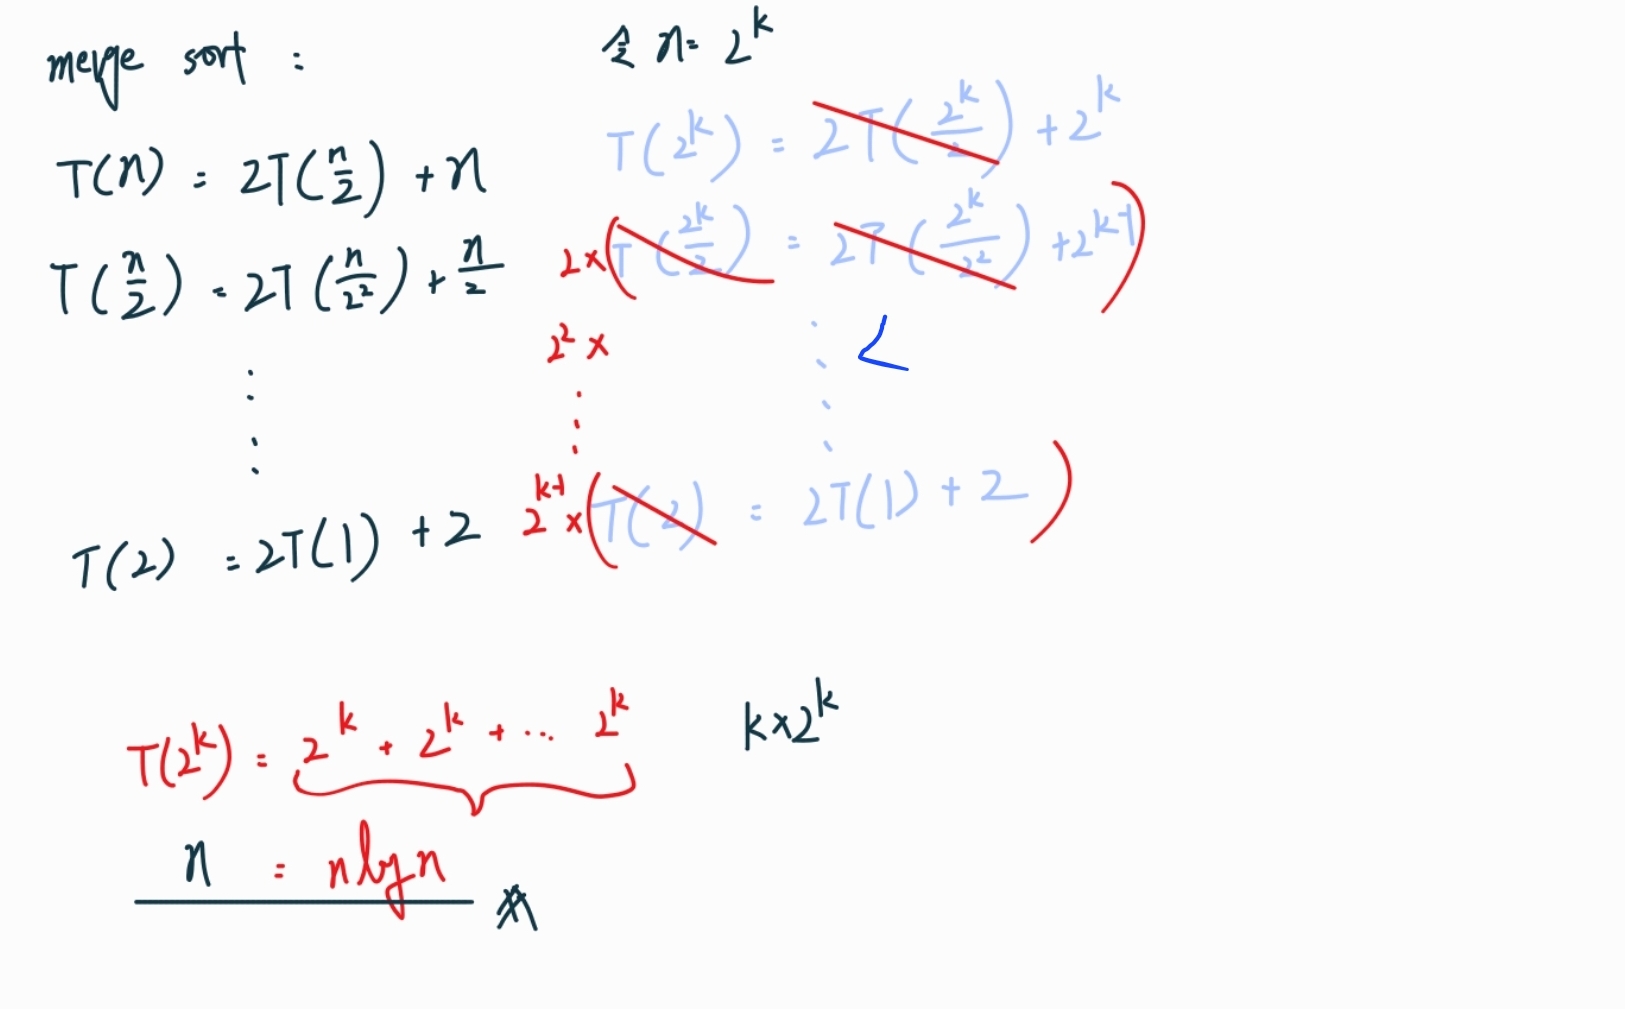 merge sort :
T(n) = 2T(n/2) + n
T(n/2) = 2T(n/2²) + n/2
⋮
T(2) = 2T(1) + 2
令 n = 2^k
T(2^k) = 2T(2^k/2) + 2^k
2×(T(2^k/2) = 2T(2^k/2²) + 2^(k-1))
2² ×
⋮
2^(k-1) ×(T(2) = 2T(1) + 2)
T(2^k) = 2^k + 2^k + ... 2^k
k×2^k
n = nlgn